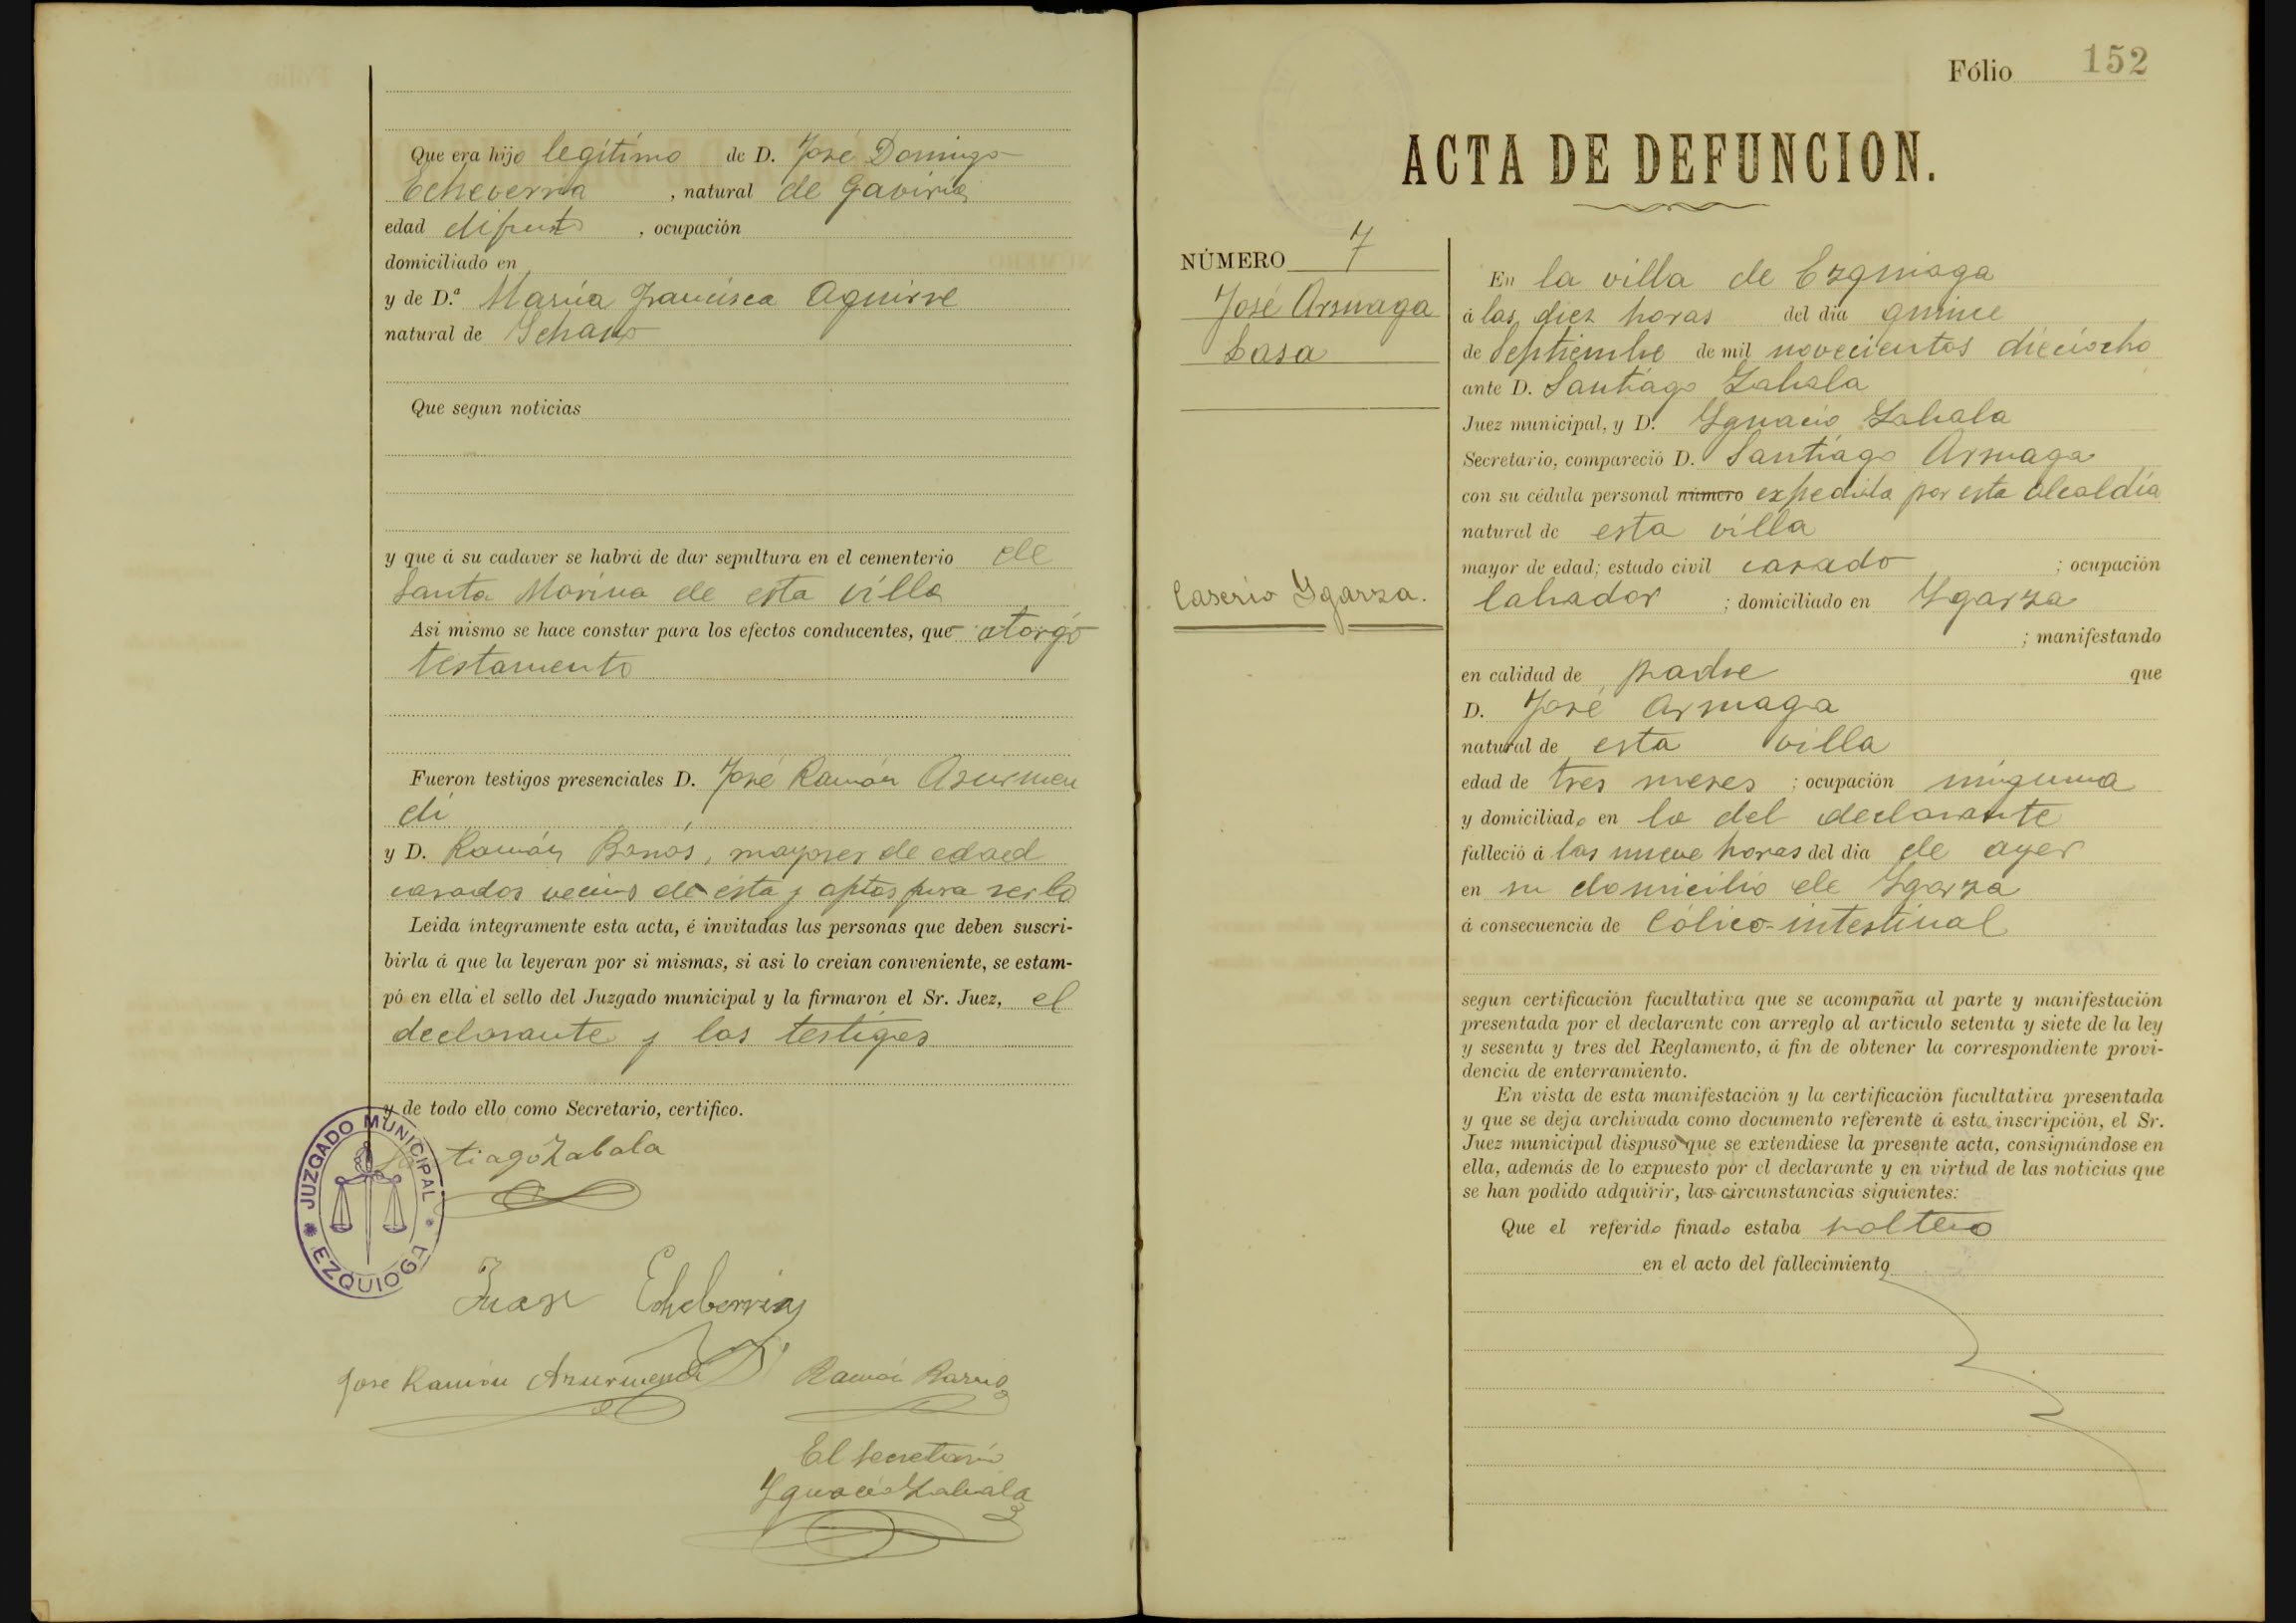 Que era hijo legítimo de D. José Domingo
Echeverria, natural de Gaviria
edad difunto, ocupación
domiciliado en
y de D.ª María Francisca Aguirre
natural de Ichaso
Que segun noticias
y que á su cadaver se habrá de dar sepultura en el cementerio de
Santa Marina de esta villa
Asi mismo se hace constar para los efectos conducentes, que otorgó
testamento
Fueron testigos presenciales D. José Ramón Azurmen
di
y D. Ramón, mayores de edad
casados vecinos de ésta y aptos para serlo
Leida íntegramente esta acta, é invitadas las personas que deben suscri-
birla á que la leyeran por si mismas, si asi lo creian conveniente, se estam-
pó en ella el sello del Juzgado municipal y la firmaron el Sr. Juez, el
declarante y los testigos
y de todo ello como Secretario, certifico.
Santiago Zabala
JUZGADO MUNICIPAL
EZQUIOGA
Juan Echeberria
José Ramón Azurmendi Ramón
El secretario
Ygnacio Zabala
Fólio 152
ACTA DE DEFUNCION.
NÚMERO 7
José Arsuaga
Sasa
Caserío Ygarza.
En la villa de Ezquioga
á las diez horas del dia quince
de Septiembre de mil novecientos dieciocho
ante D. Santiago Zabala
Juez municipal, y D. Ygnacio Zabala
Secretario, compareció D. Santiago Arsuaga
con su cédula personal número expedida por esta alcaldía
natural de esta villa
mayor de edad; estado civil casado; ocupación
labrador; domiciliado en Ygarza
; manifestando
en calidad de padre que
D. José Arsuaga
natural de esta villa
edad de tres meses; ocupación ninguna
y domiciliado en lo del declarante
falleció á las nueve horas del dia de ayer
en su domicilio de Ygarza
á consecuencia de Cólico-intestinal
segun certificación facultativa que se acompaña al parte y manifestación
presentada por el declarante con arreglo al articulo setenta y siete de la ley
y sesenta y tres del Reglamento, á fin de obtener la correspondiente provi-
dencia de enterramiento.
En vista de esta manifestación y la certificación facultativa presentada
y que se deja archivada como documento referente á esta inscripción, el Sr.
Juez municipal dispuso que se extendiese la presente acta, consignándose en
ella, además de lo expuesto por el declarante y en virtud de las noticias que
se han podido adquirir, las circunstancias siguientes:
Que el referido finado estaba soltero
en el acto del fallecimiento